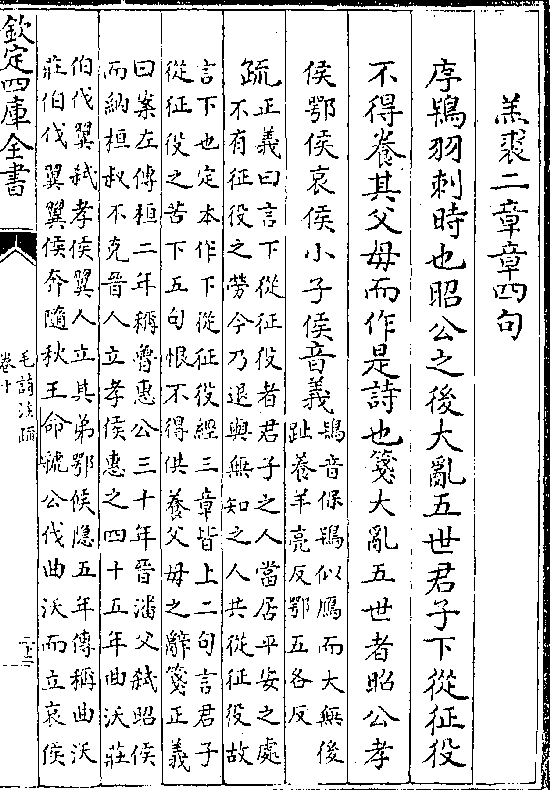 羔裘二章章四句
序鴇羽刺時也昭公之後大亂五世君子下從征役
不得養其父母而作是詩也箋大亂五世者昭公孝
侯鄂侯哀侯小子侯音義
鴇音保鴇似鴈而大無後
趾養羊亮反鄂五各反
疏
正義曰言下從征役者君子之人當居平安之處
不有征役之勞今乃退與無知之人共從征役故
言下也定本作下從征役經三章皆上二句言君子
從征役之苦下五句恨不得供養父母之辭箋正義
曰案左傳桓二年稱魯惠公三十年晉潘父弑昭侯
而納桓叔不克晉人立孝侯惠之四十五年曲沃莊
伯伐翼弑孝侯翼人立其弟鄂侯隱五年傳稱曲沃
莊伯伐翼翼侯奔隨秋王命虢公伐曲沃而立哀侯
欽定四庫全書
毛詩注疏
卷十